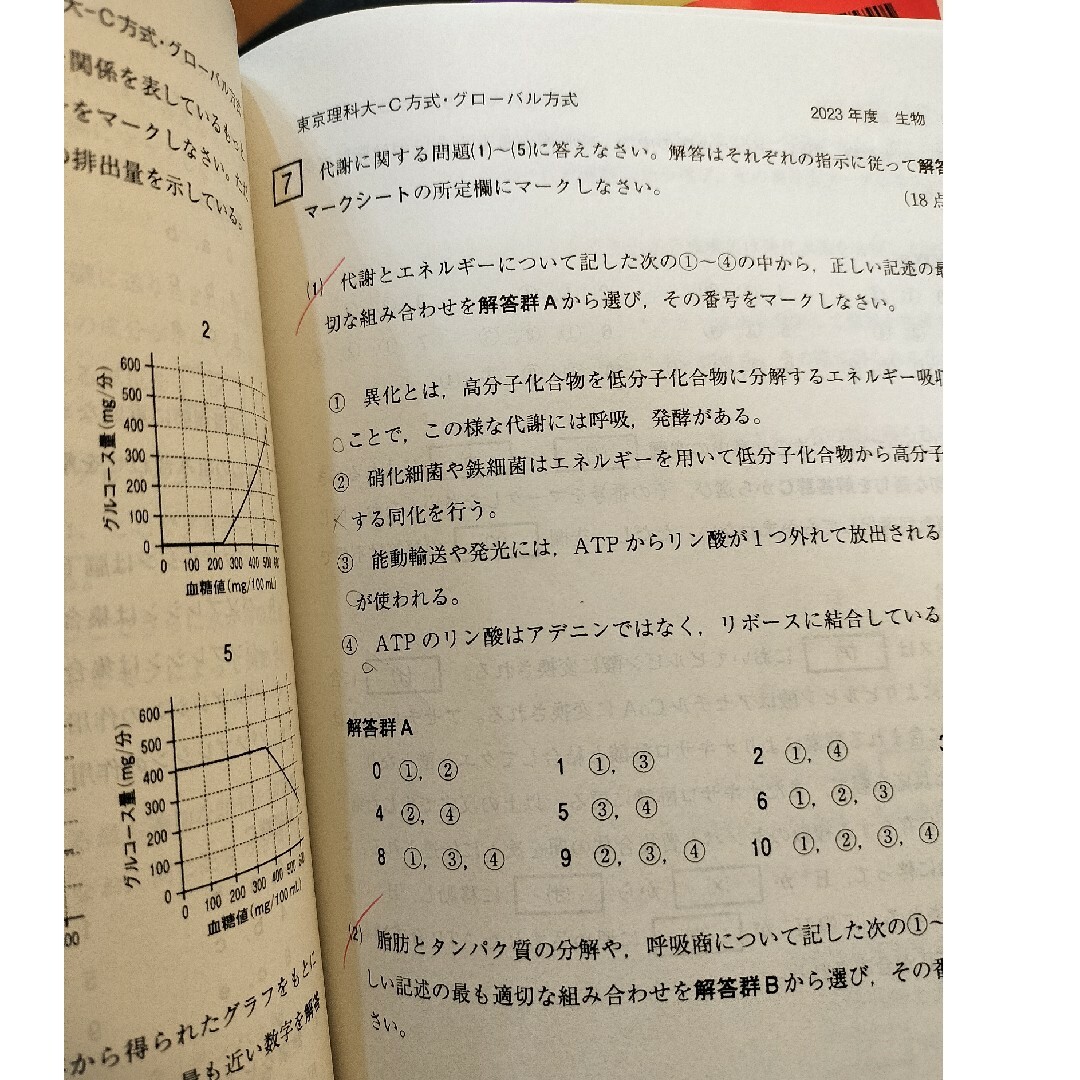 大-C方式・グローバル方式
関係を表しているもっと
をマークしなさい。ただ
排出量を示している。
2
グルコース量(mg/分)
600
500
400
300
200
100
0
0 100 200 300 400 500 600
血糖値(mg/100mL)
5
グルコース量(mg/分)
600
500
400
300
200
100
0
0 100 200 300 400 500 60
血糖値(mg/100mL)
から得られたグラフをもとに
最も近い数字を解答
東京理科大-C方式・グローバル方式
2023年度 生物
7 代謝に関する問題(1)〜(5)に答えなさい。解答はそれぞれの指示に従って解答
マークシートの所定欄にマークしなさい。
(18点
(1) 代謝とエネルギーについて記した次の①〜④の中から，正しい記述の最
切な組み合わせを解答群Aから選び，その番号をマークしなさい。
① 異化とは，高分子化合物を低分子化合物に分解するエネルギー吸収
ことで，この様な代謝には呼吸，発酵がある。
② 硝化細菌や鉄細菌はエネルギーを用いて低分子化合物から高分子
する同化を行う。
③ 能動輸送や発光には，ATPからリン酸が1つ外れて放出される
が使われる。
④ ATPのリン酸はアデニンではなく，リボースに結合している
解答群A
0 ①，② 1 ①，③ 2 ①，④
4 ②，④ 5 ③，④ 6 ①，②，③
8 ①，③，④ 9 ②，③，④ 10 ①，②，③，④
(2) 脂肪とタンパク質の分解や，呼吸商について記した次の①〜
しい記述の最も適切な組み合わせを解答群Bから選び，その番
さい。